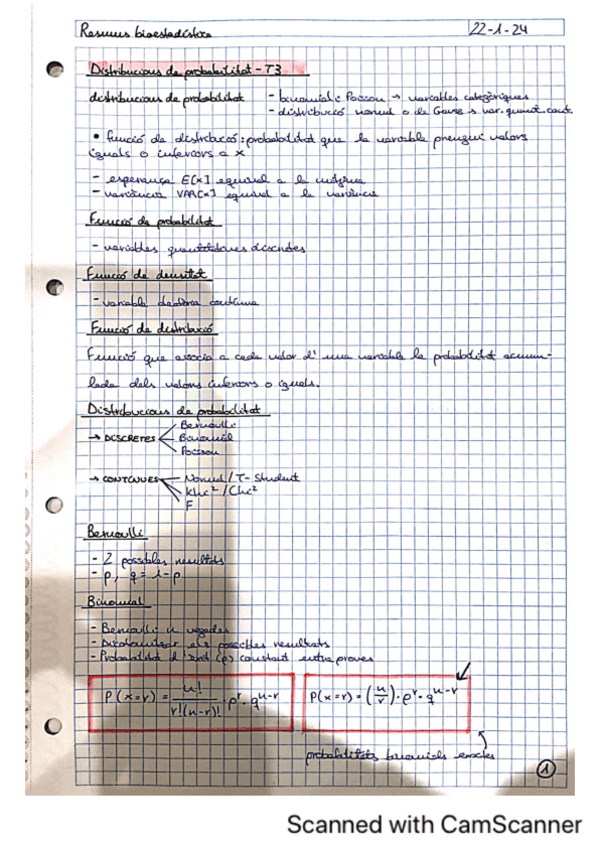 Resums bioestadística
22-1-24
Distribucions de probabilitat - T3
distribucions de probabilitat - binomial i Poisson → variables categòriques
- distribució normal o de Gauss → var. quant. cont.
• funció de distribució: probabilitat que la variable prengui valors
iguals o inferiors a x
- esperança E[x] equival a la mitjana
- variància VAR[x] equival a la variància
Funció de probabilitat
- variables quantitatives discretes
Funció de densitat
- variable contínua
Funció de distribució
Funció que associa a cada valor d'una variable la probabilitat acumu-
lada dels valors inferiors o iguals.
Distribucions de probabilitat
→ DISCRETES
Bernoulli
Binomial
Poisson
→ CONTINUES
Normal / T-Student
Khi² / Chi²
F
Bernoulli
- 2 possibles resultats
- p, q = 1-p
Binomial
- Bernoulli n vegades
- Dicotomitzar els possibles resultats
- Probabilitat d'èxit (p) constant entre proves
P(x=r) = n! / r!(n-r)! · p^r · q^n-r
P(x=r) = (n/r) · p^r · q^n-r
probabilitats binomials exactes
1
Scanned with CamScanner